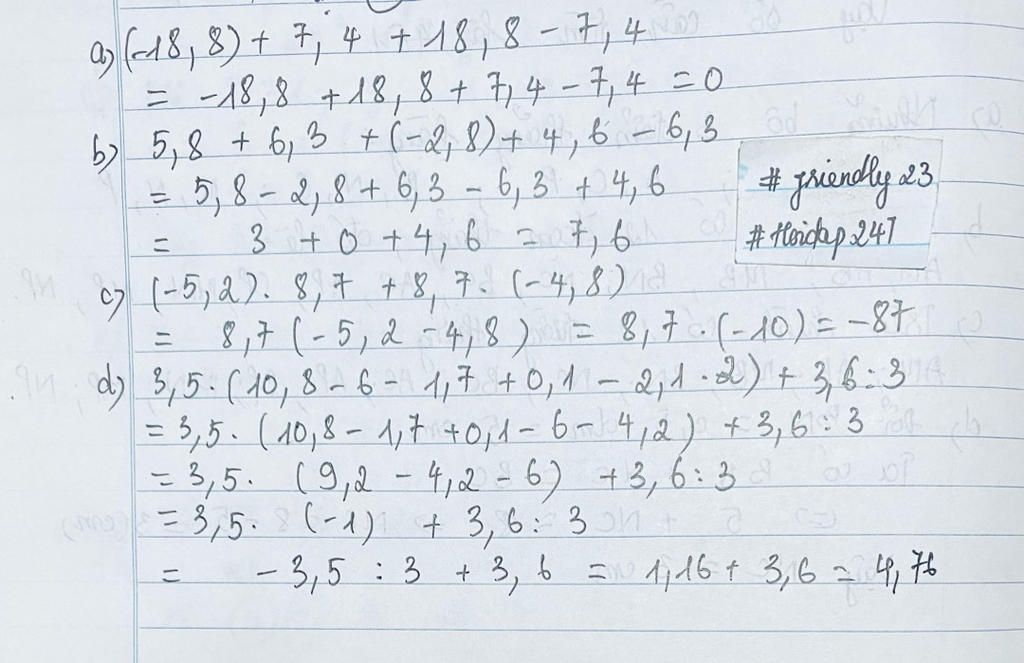 a) (-18,8) + 7,4 + 18,8 - 7,4
= -18,8 + 18,8 + 7,4 - 7,4 = 0
b) 5,8 + 6,3 + (-2,8) + 4,6 - 6,3
= 5,8 - 2,8 + 6,3 - 6,3 + 4,6
= 3 + 0 + 4,6 = 7,6
# friendly 23
# Hoidap 247
c) (-5,2). 8,7 + 8,7. (-4,8)
= 8,7 (-5,2 - 4,8) = 8,7 . (-10) = -87
d) 3,5 : (10,8 - 6 - 1,7 + 0,1 - 2,1 . 2) + 3,6 : 3
= 3,5 . (10,8 - 1,7 + 0,1 - 6 - 4,2) + 3,6 : 3
= 3,5 . (9,2 - 4,2 - 6) + 3,6 : 3
= 3,5 . (-1) + 3,6 : 3
= -3,5 : 3 + 3,6 = 1,16 + 3,6 = 4,76